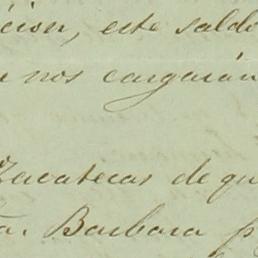 ición, este saldo
e nos cargarán
Zacatecas de qu
a. Barbara p